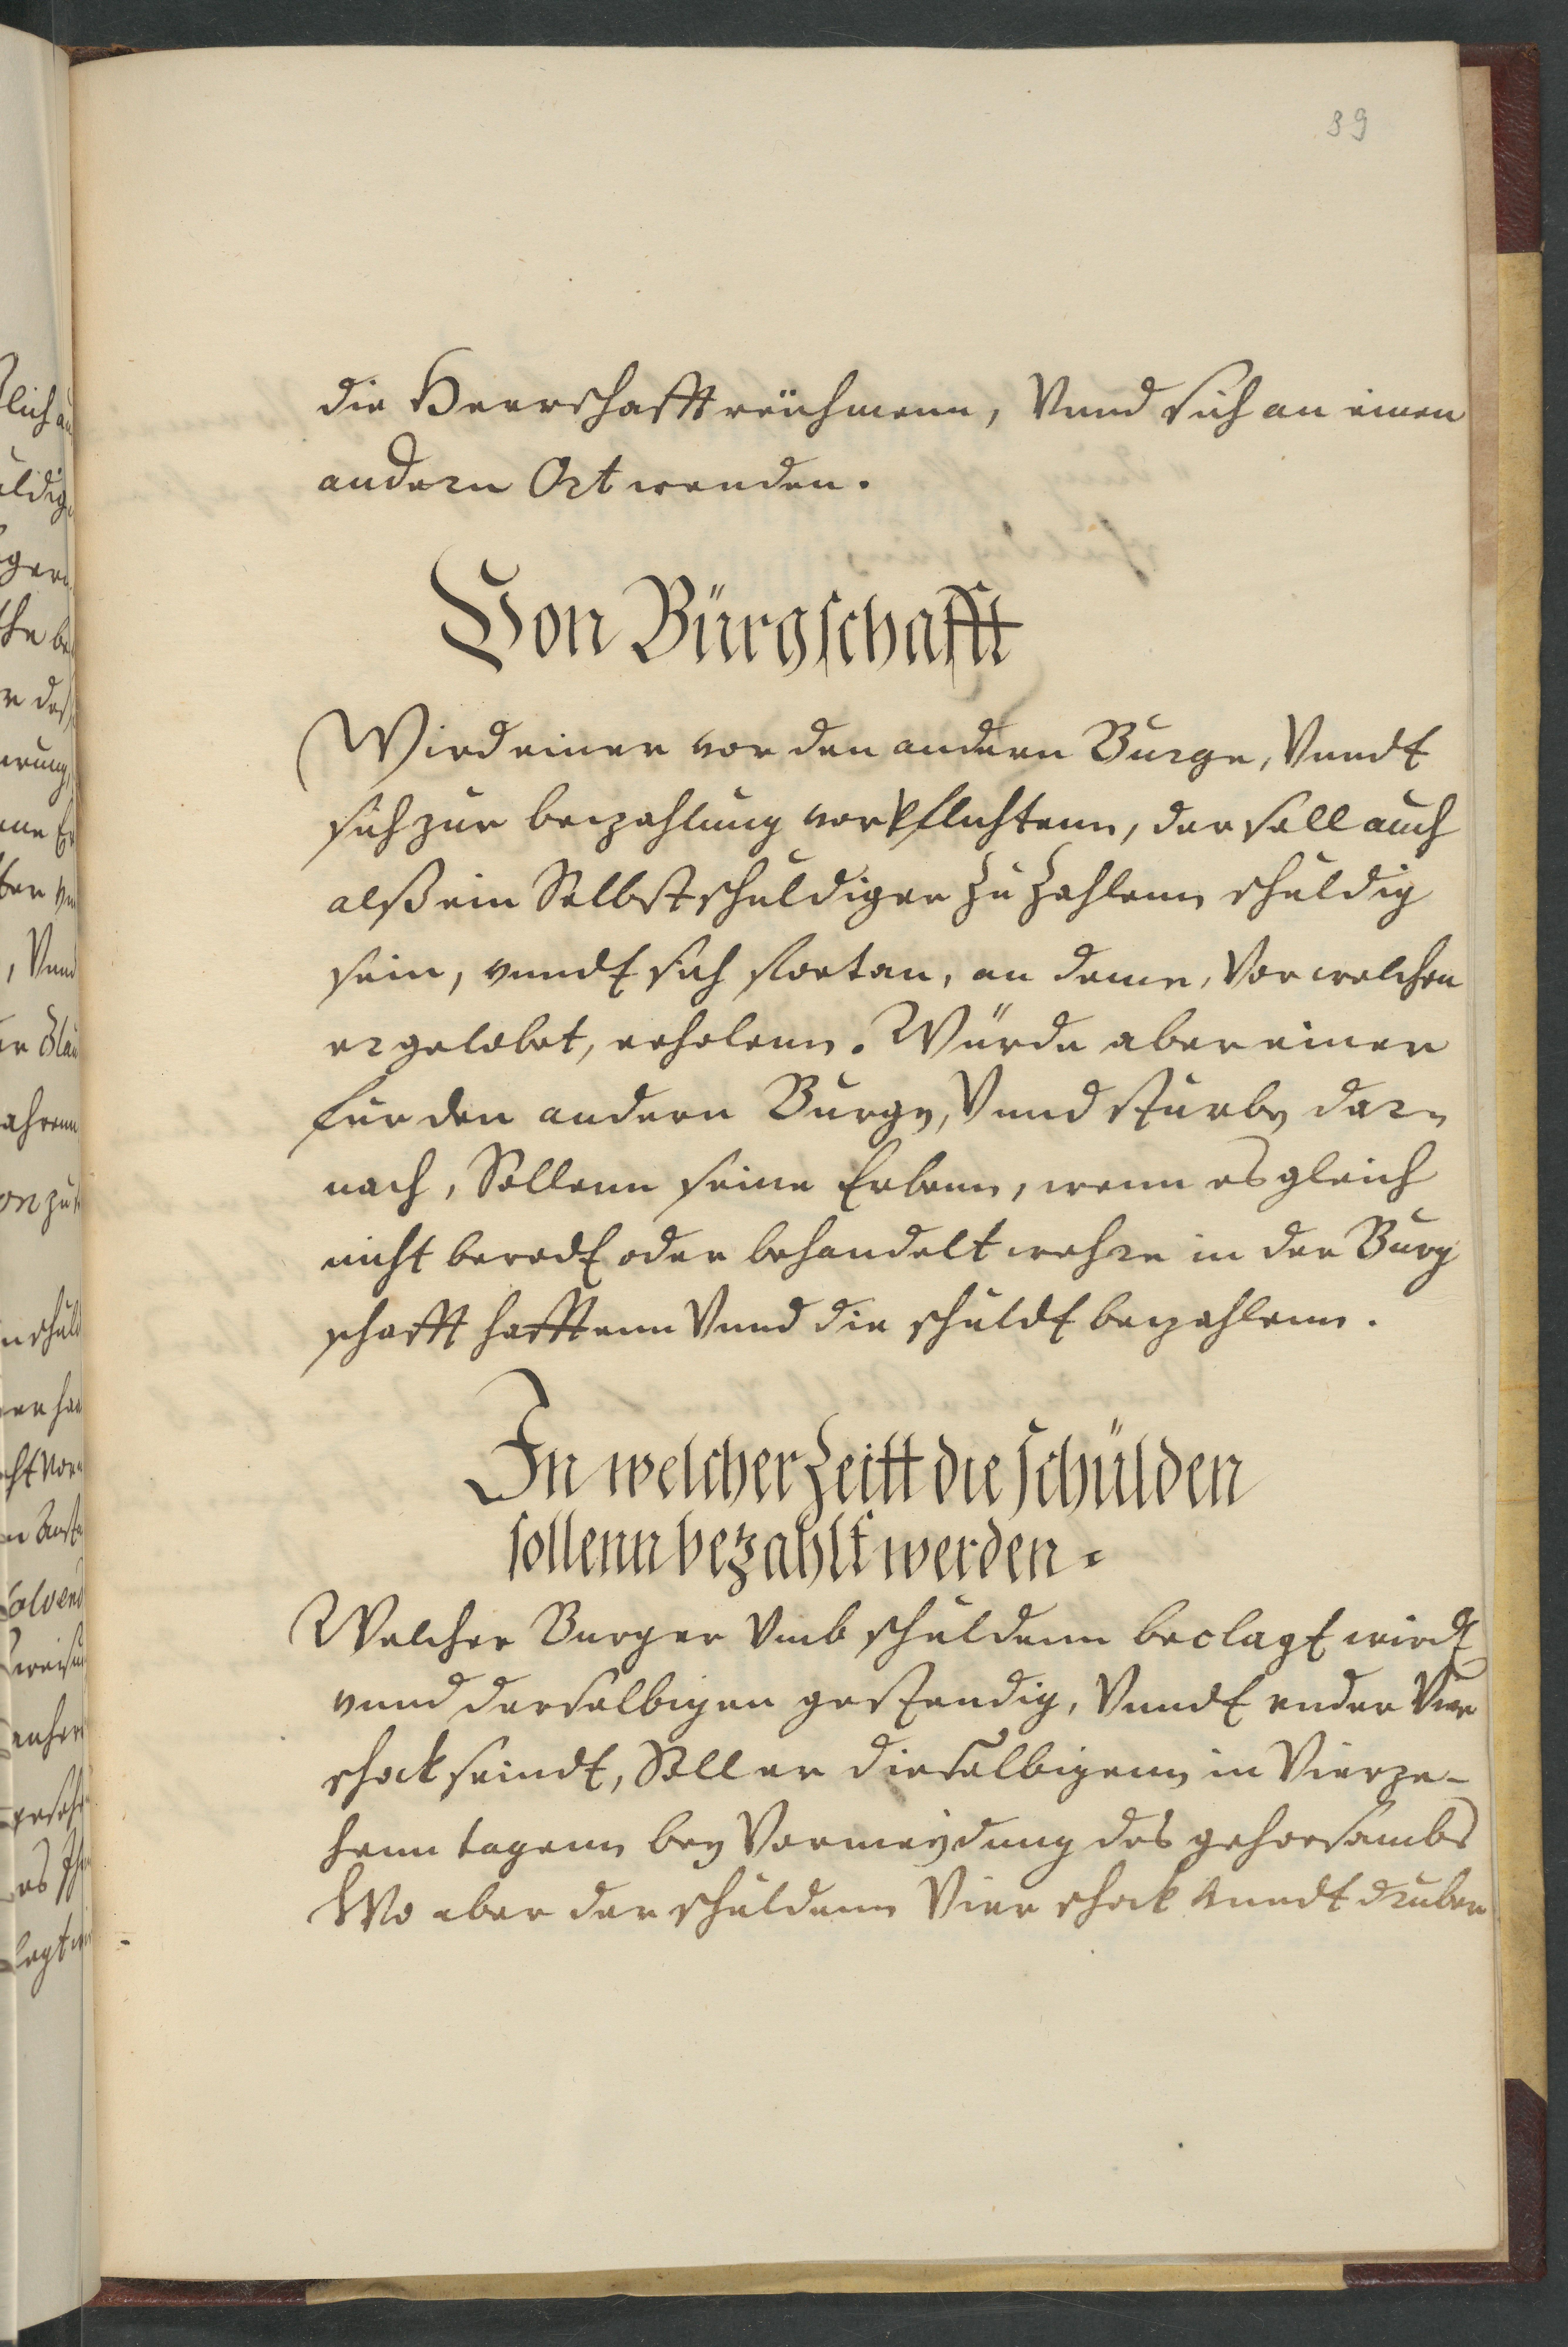 39
die Heerschafft reuhmenn, Vnnd sich an einen
andern Ort wenden.
Von Bürgschafft
Wird einer vor den andern Burge, Vnndt
sich zur beczahlung vorpflichtenn, der soll auch
alß ein Selbstschuldiger zu zahlenn schuldig
sein, vnndt sich fortan, an deme, Vor welchen
er gelobet, erholenn. Würde aber einer
für den andern Burge, Vnnd stürbe dar¬
nach, Sollenn seine Erbenn, wenn es gleich
nicht beredt oder behandelt wehre in der Burg
schafft hafftenn Vnnd die schuldt beczahlenn.
In welcher Zeitt die schülden
sollenn bezahlt werden.
Welcher Burger Vmb schuldenn beclagt wirdt
vnnd derselbigen gestendig, Vnndt vnder Vier
schock seindt, Soll er dieselbigenn in Vierze-
henn tagenn bey Vormeydung des gehorsambs
Wo aber der schuldenn Vier schock vnndt druber